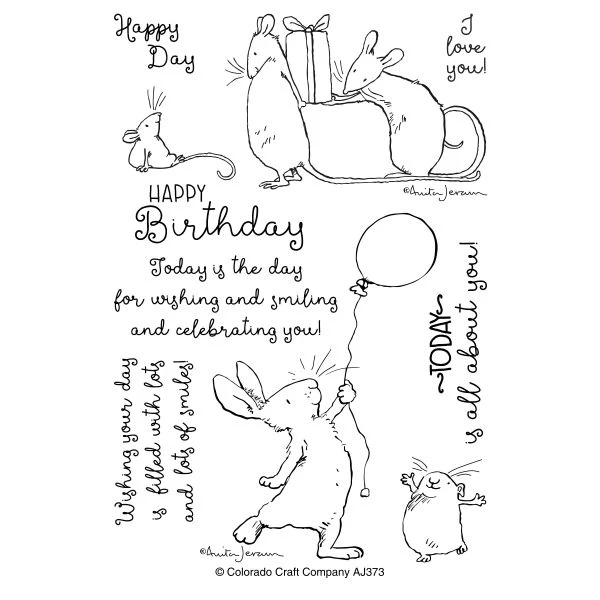 Happy
Day
I
love
you!
©Anita Jeram
HAPPY
Birthday
Today is the day
for wishing and smiling
and celebrating you!
~TODAY~
is all about you!
Wishing your day
is filled with lots
and lots of smiles!
©Anita Jeram
© Colorado Craft Company AJ373